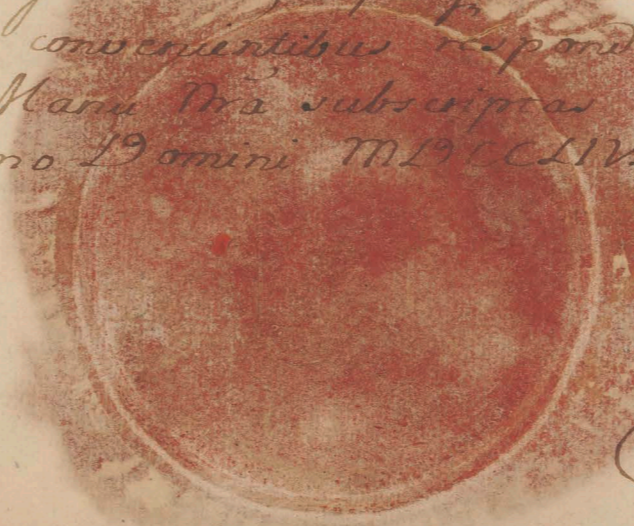 convenientibus respond
Manu Nrã subscriptas
no Domini MDCCLIV